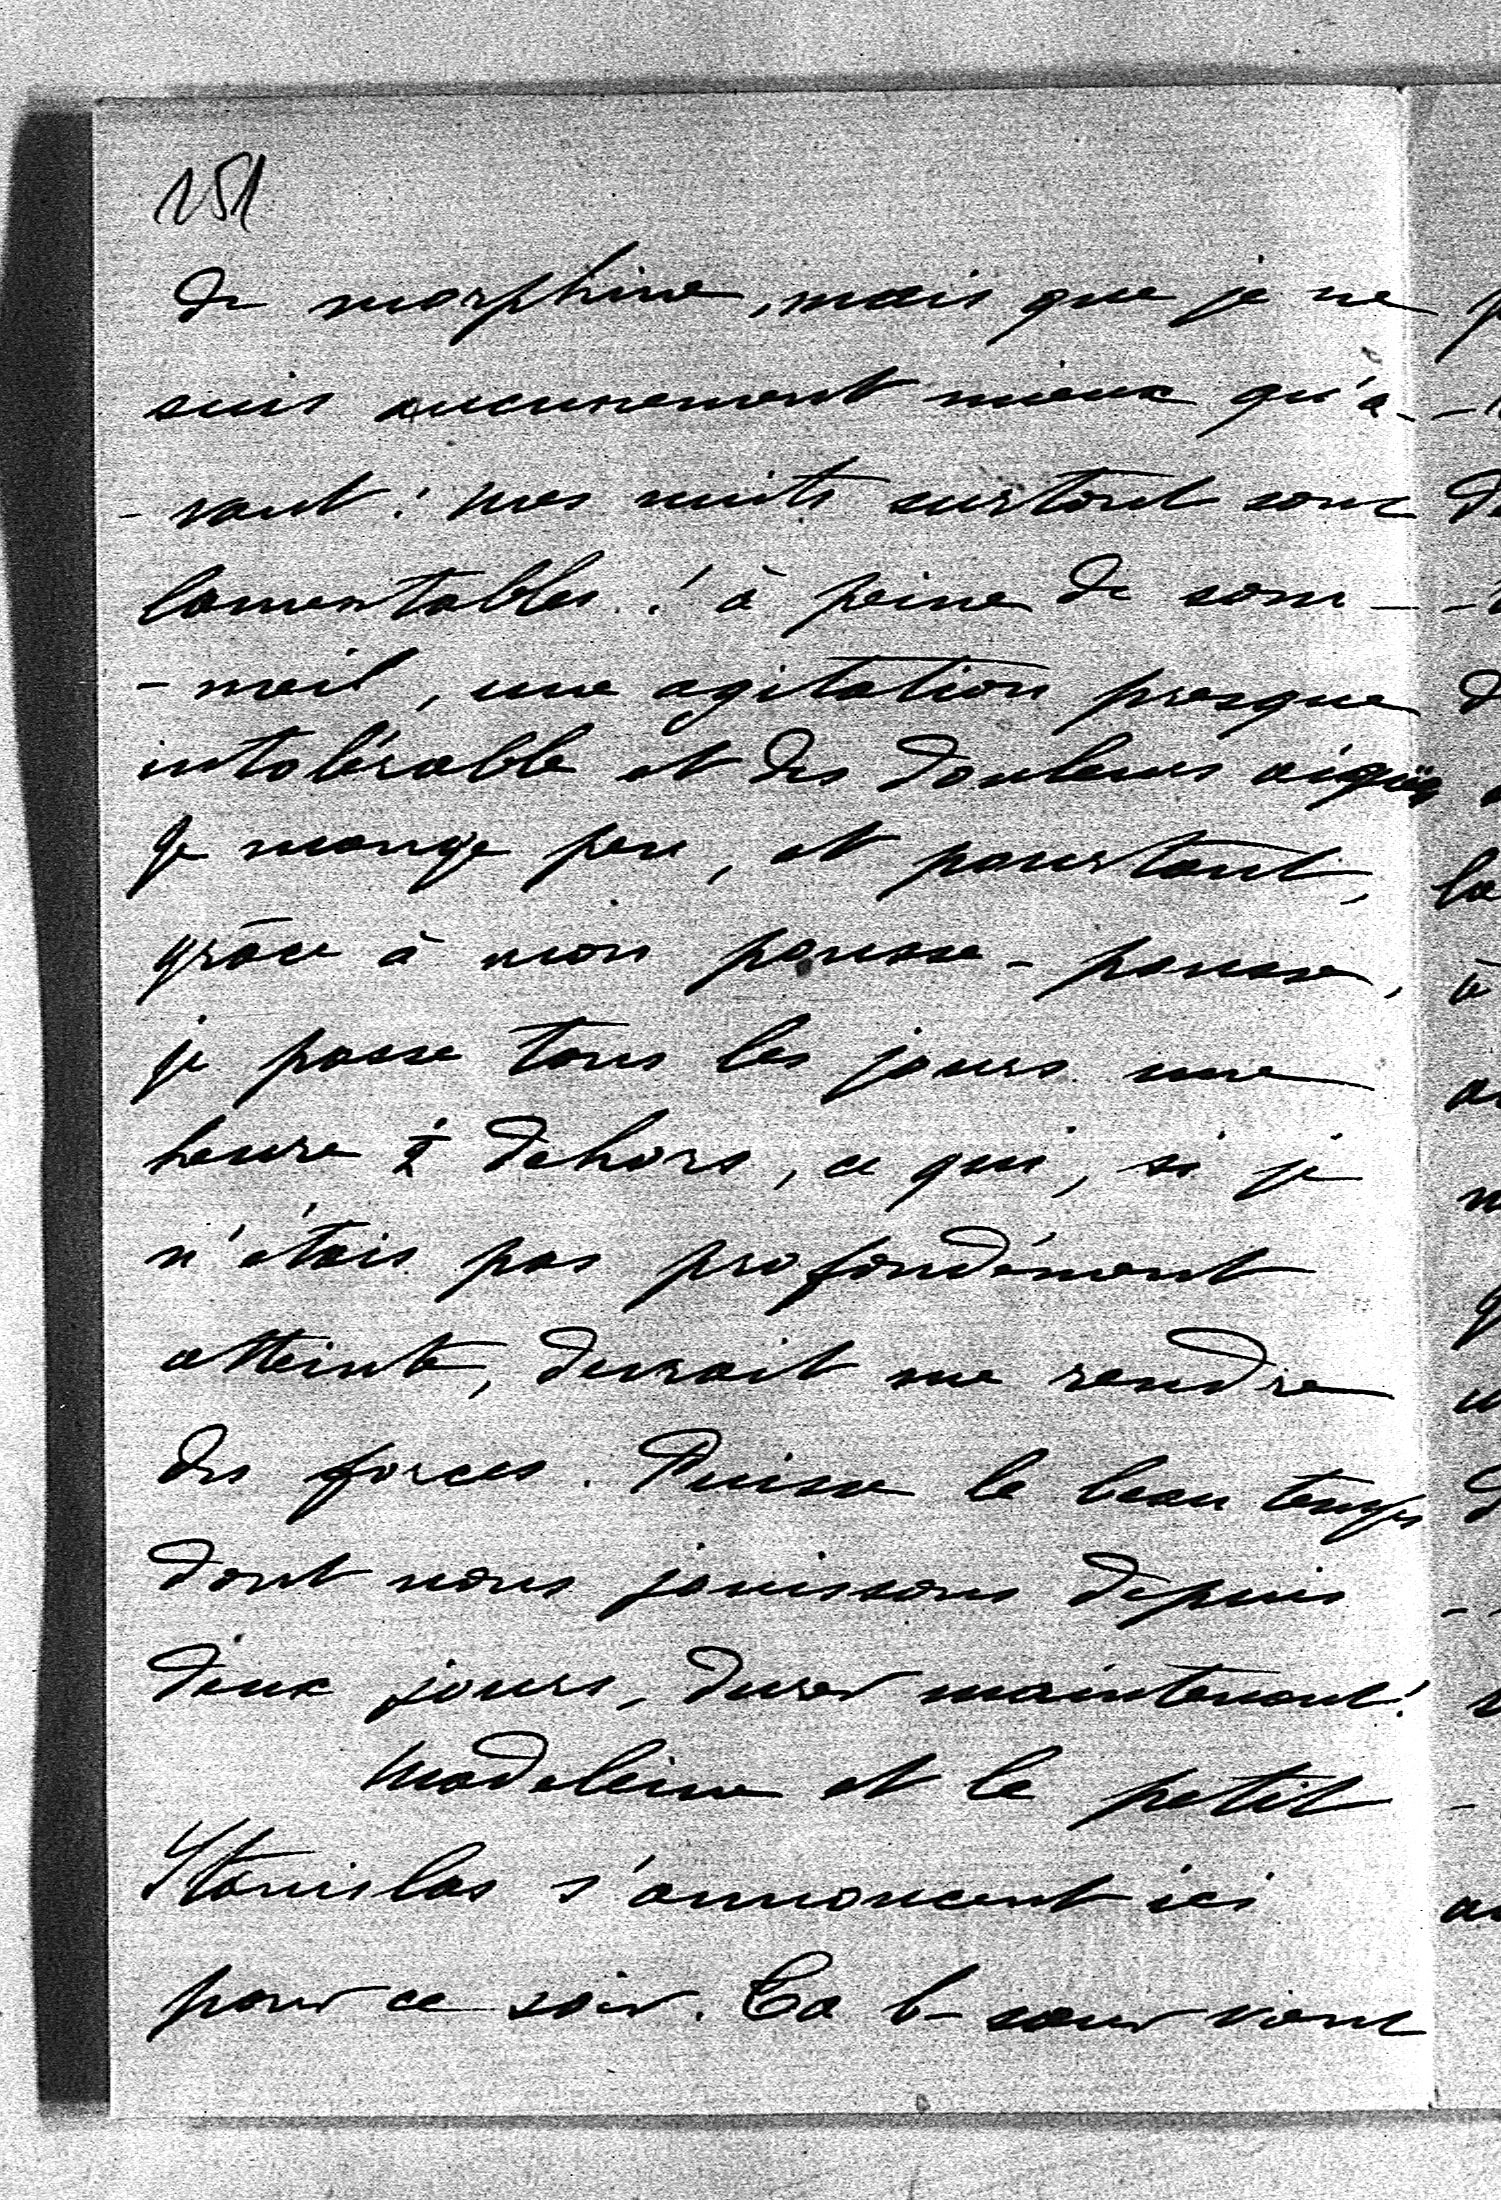 151
de morphine, mais que je ne
suis aucunement mieux qu'a-
-vant : mes nuits surtout sont
lamentables : à peine de som-
-meil, une agitation presque
intolérable et des douleurs aiguës
Je mange peu, et pourtant,
grâce à mon pousse-pousse,
je passe tous les jours une
heure ½ dehors, ce qui, si je
n'étais pas profondément
atteinte, devrait me rendre
des forces. Puisse le beau temps
dont nous jouissons depuis
deux jours, durer maintenant!
Madeleine et le petit
Stanislas s'annoncent ici
pour ce soir. Ta b-sœur vient